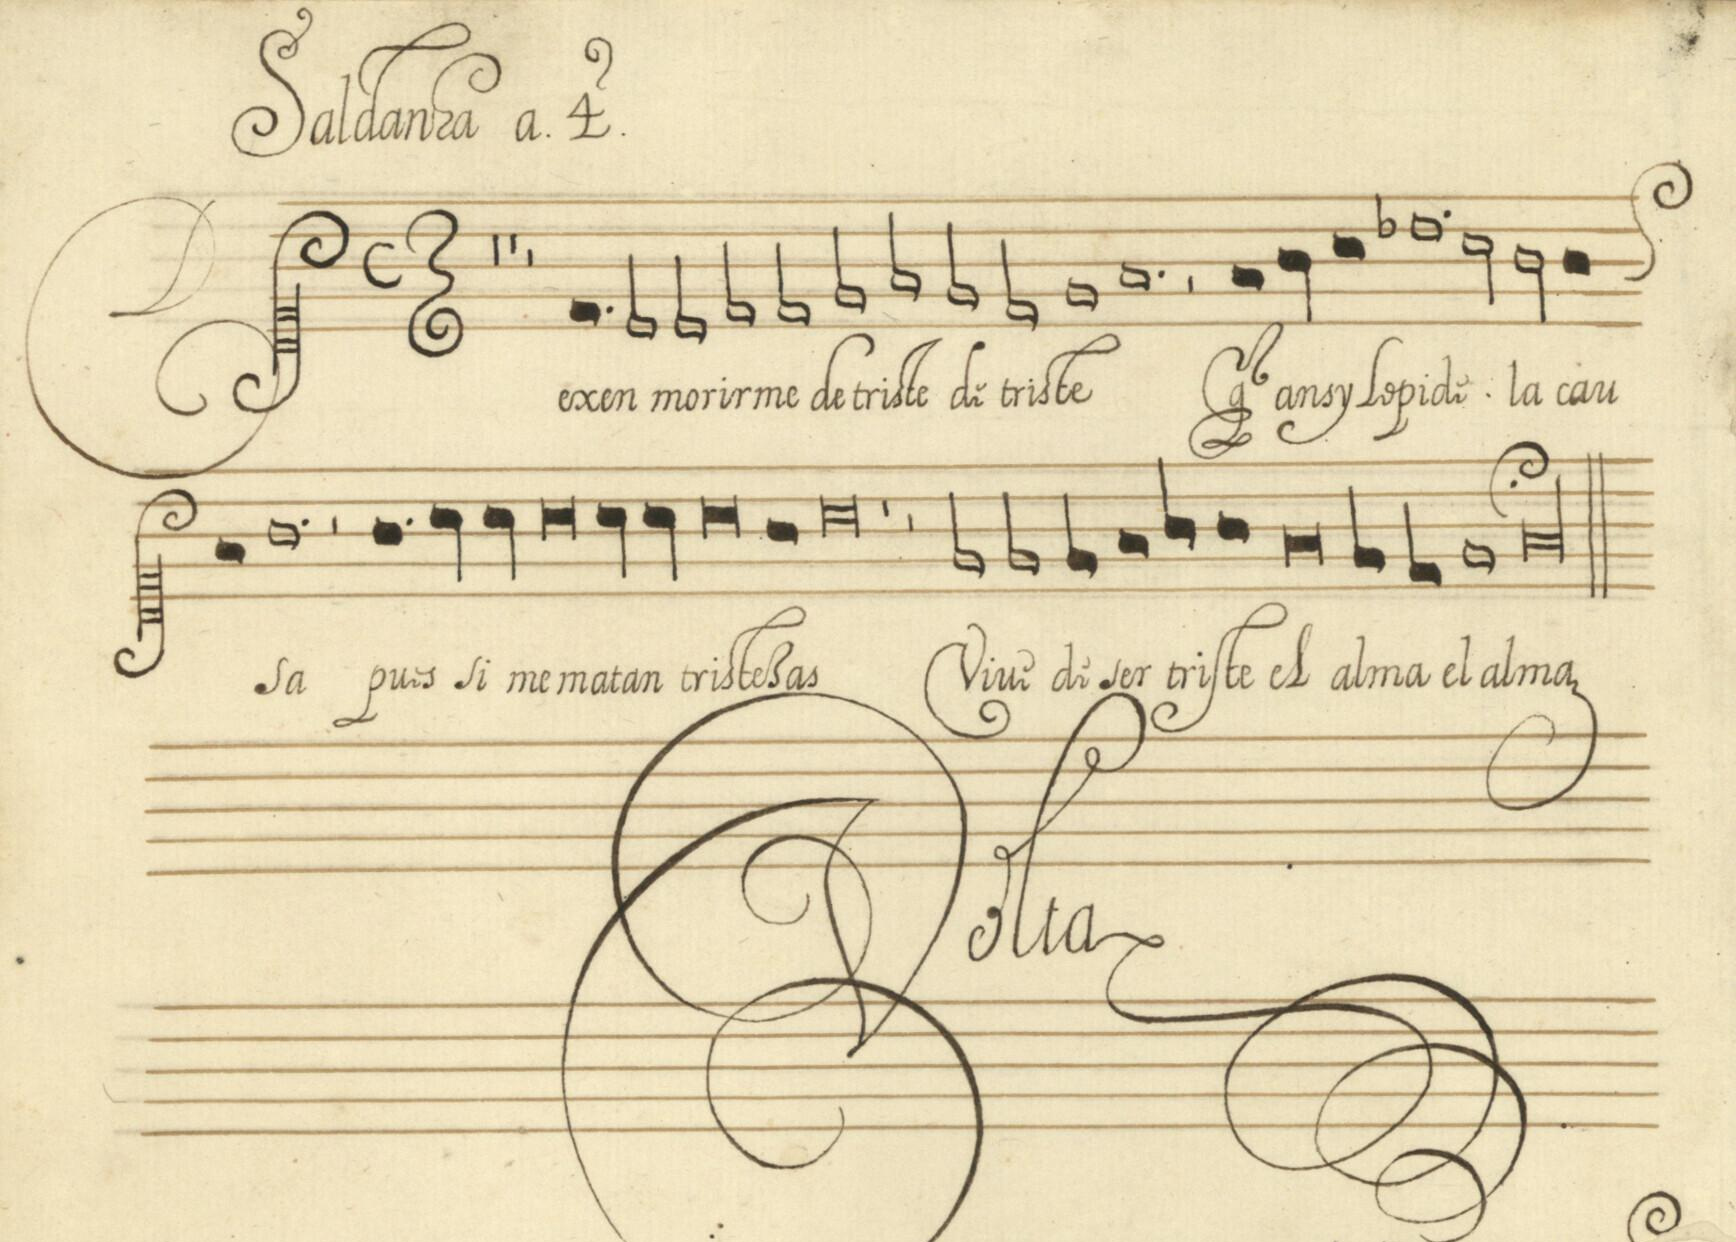 Saldanha a. 4.
Dexen morirme de triste de triste Q̃ ansy lo pide. la cau
sa pues si me matan tristesas Viue de ser triste el alma el alma
Volta